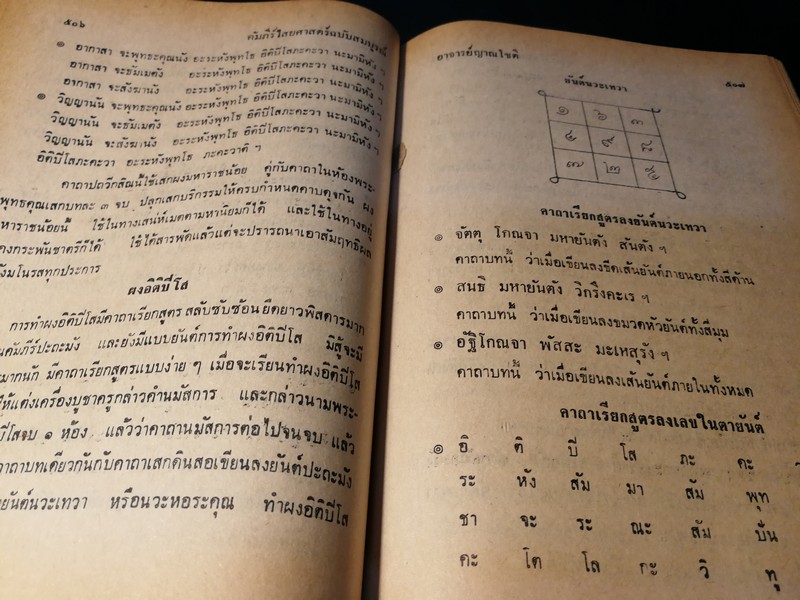 ๕๐๖
คัมภีร์ไสยศาสตร์ฉบับสมบูรณ์
๏ อากาสา จะพุทธะคุณนัง อะระหังพุทโธ อิติปิโสภะคะวา นะมามิหัง ฯ
อากาสา จะธัมเมตัง อะระหังพุทโธ อิติปิโสภะคะวา นะมามิหัง ฯ
อากาสา จะสังฆานัง อะระหังพุทโธ อิติปิโสภะคะวา นะมามิหัง ฯ
๏ วิญญานัน จะพุทธะคุณนัง อะระหังพุทโธ อิติปิโสภะคะวา นะมามิหัง ฯ
วิญญานัน จะธัมเมตัง อะระหังพุทโธ อิติปิโสภะคะวา นะมามิหัง ฯ
วิญญานัน จะสังฆานัง อะระหังพุทโธ อิติปิโสภะคะวา นะมามิหัง ฯ
อิติปิโสภะคะวา อะระหังพุทโธ ภะคะวาติ ฯ
คาถาปถวีกสิณนี้ใช้เสกผงมหาราชน้อย คู่กับคาถาในห้องพระ-
พุทธคุณเสกบทละ ๓ จบ ปลุกเสกบริกรรมให้ครบกำหนดคาบดุจกัน ผง
หาราชน้อยนี้ ใช้ในทางเสน่ห์เมตตามหานิยมก็ได้ และใช้ในทางอยู่
คงกระพันชาตรีก็ได้ ใช้ได้สารพัดแล้วแต่จะปรารถนาเอาสัมฤทธิผล
มโนรสทุกประการ
ผงอิติปิโส
การทำผงอิติปิโสมีคาถาเรียกสูตร สลับซับซ้อนยืดยาวพิสดารมาก
คัมภีร์ปะถะมัง และยังมีแบบยันต์การทำผงอิติปิโส มิสู้จะมี
มากนัก มีคาถาเรียกสูตรแบบง่าย ๆ เมื่อจะเรียนทำผงอิติปิโส
ให้แต่งเครื่องบูชาครูกล่าวคำนมัสการ และกล่าวนามพระ-
ปิโสจบ ๑ ห้อง แล้วว่าคาถานมัสการต่อไปจนจบ แล้ว
คาถาบทเดียวกันกับคาถาเสกดินสอเขียนลงยันต์ปะถะมัง
ยันต์นวะเทวา หรือนวะหอระคุณ ทำผงอิติปิโส
อาจารย์ญาณโชติ
๕๐๗
ยันต์นวะเทวา
๑ ๖ ๓
๔ ๙ ๘
๗ ๒ ๕
คาถาเรียกสูตรลงยันต์นวะเทวา
๏ จัตตุ โกณจา มหายันตัง สันตัง ฯ
คาถาบทนี้ ว่าเมื่อเขียนลงขีดเส้นยันต์ภายนอกทั้งสี่ด้าน
๏ สนธิ มหายันตัง วิกรึงคะเร ฯ
คาถาบทนี้ ว่าเมื่อเขียนลงขมวดหัวยันต์ทั้งสี่มุม
๏ อัฐิโกณจา พัสสะ มะเหสุรัง ฯ
คาถาบทนี้ ว่าเมื่อเขียนลงเส้นยันต์ภายในทั้งหมด
คาถาเรียกสูตรลงเลขในตายันต์
๏ อิ ติ ปิ โส ภะ คะ
ระ หัง สัม มา สัม พุท
ชา จะ ระ ณะ สัม ปัน
คะ โต โล กะ วิ ทู